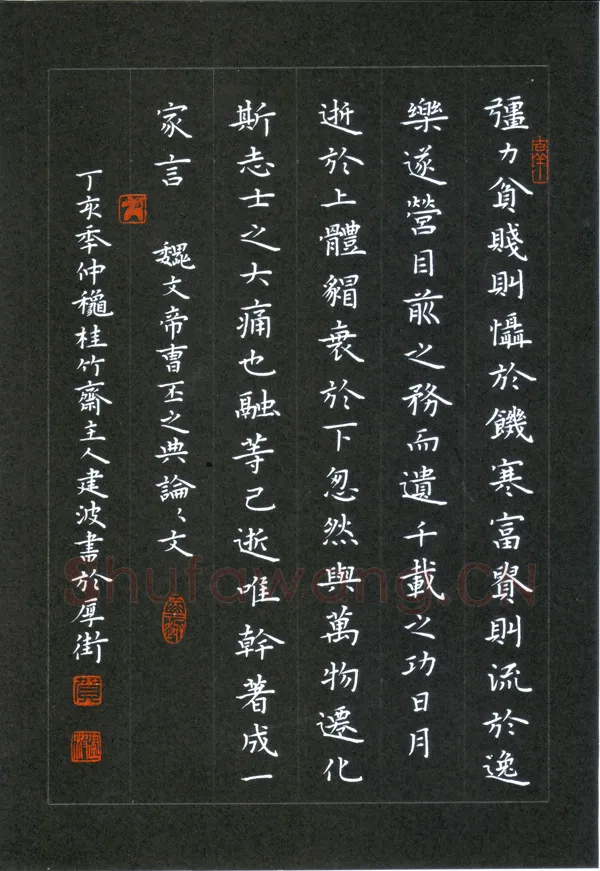 彊力貧賤則懾於饑寒富貴則流於逸
樂遂營目前之務而遺千載之功日月
逝於上體貌衰於下忽然與萬物遷化
斯志士之大痛也融等已逝唯幹著成一
家言 魏文帝曹丕之典論々文
丁亥季仲穐桂竹齋主人建波書於厚街
Shufawang.CN